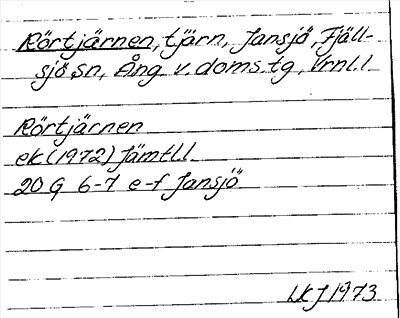 Rörtjärnen, tjärn, Jansjö, Fjäll-
sjö sn, Ång. v. doms. tg, Vrnl.l.
Rörtjärnen
ek (1972) Jämtl.l.
20 G 6-7 e-f Jansjö
LKJ 1973